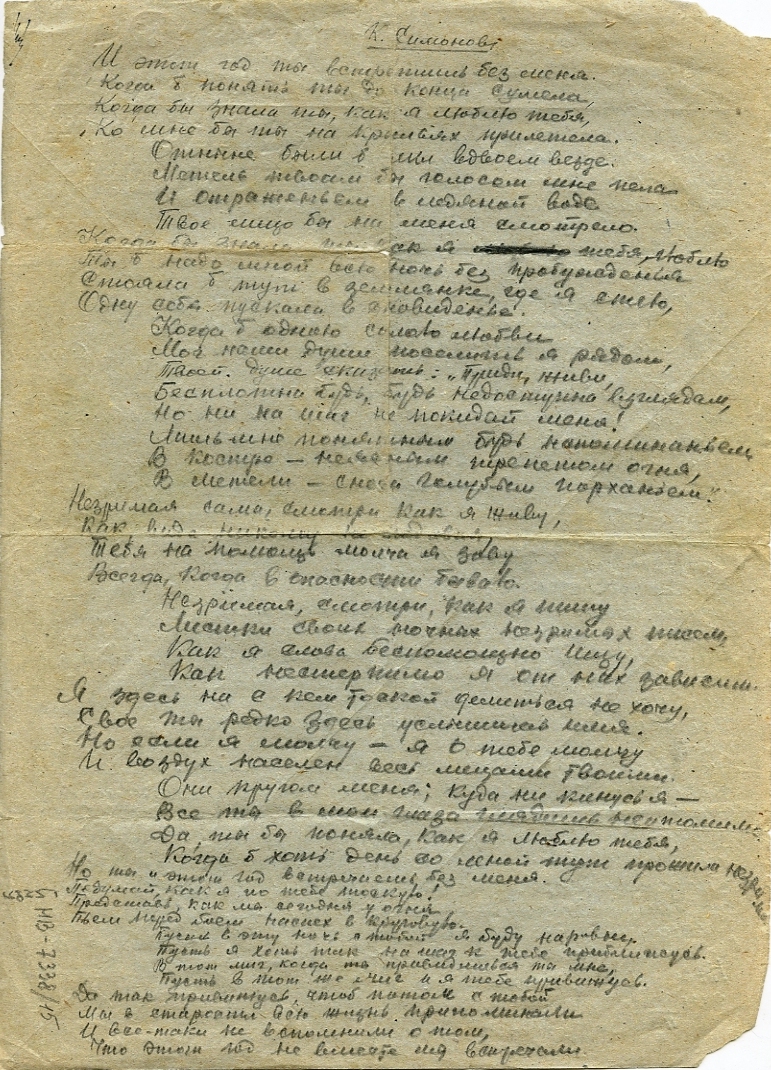 К. Симонов
И этот год ты встретишь без меня.
Когда б понять ты до конца сумела,
Когда бы знала ты, как я люблю тебя,
Ко мне бы ты на крыльях прилетела.
Отныне были б мы вдвоем везде.
Метель твоим бы голосом мне пела
И отраженьем в ледяной воде
Твое лицо бы на меня смотрело.
Когда бы знала ты, как я тебя люблю
Ты б надо мной всю ночь без пробужденья
Стояла б тут в землянке, где я сплю,
Одну себя пуская в сновиденье.
Когда б одною силою любви
Мог наши души поселить я рядом,
Твоей душе сказать: "Приди, живи,
Бесплотна будь, будь недоступна взглядам,
Но ни на шаг не покидай меня!
Лишь мне понятным будь напоминаньем
В костре – неясным трепетом огня,
В метели – снега голубым порханьем".
Незримая сама, смотри как я живу,
Как
Тебя на помощь молча я зову
Всегда, когда в опасности бываю.
Незримая, смотри, как я пишу
Листки своих ночных незримых писем,
Как я слова беспомощно ищу,
Как нестерпимо я от них зависим.
Я здесь ни с кем тоской делиться не хочу,
Свое ты редко здесь услышишь имя.
Но если я молчу – я о тебе молчу
И воздух населен весь лицами твоими.
Они кругом меня; куда ни кинусь я –
Все ты в мои глаза глядишь неутомимо
Да, ты бы поняла, как я люблю тебя,
Когда б хоть день со мной тут прожила незримо
Но ты и этот год встречаешь без меня.
Подумай, как я по тебе тоскую!
Представь, как мы сегодня у огня
Пьем перед боем наспех в круговую.
Пусть в эту ночь с тобой я буду наравне.
Пусть я хоть так на шаг к тебе приближусь.
В тот миг, когда ты привидишься мне,
Пусть в тот же миг и я тебе привижусь.
Да так привижусь, чтоб потом с тобой
Мы в старости всю жизнь припоминали
И все-таки не вспомнили о том,
Что этот год не вместе мы встречали
НВ-7338/15